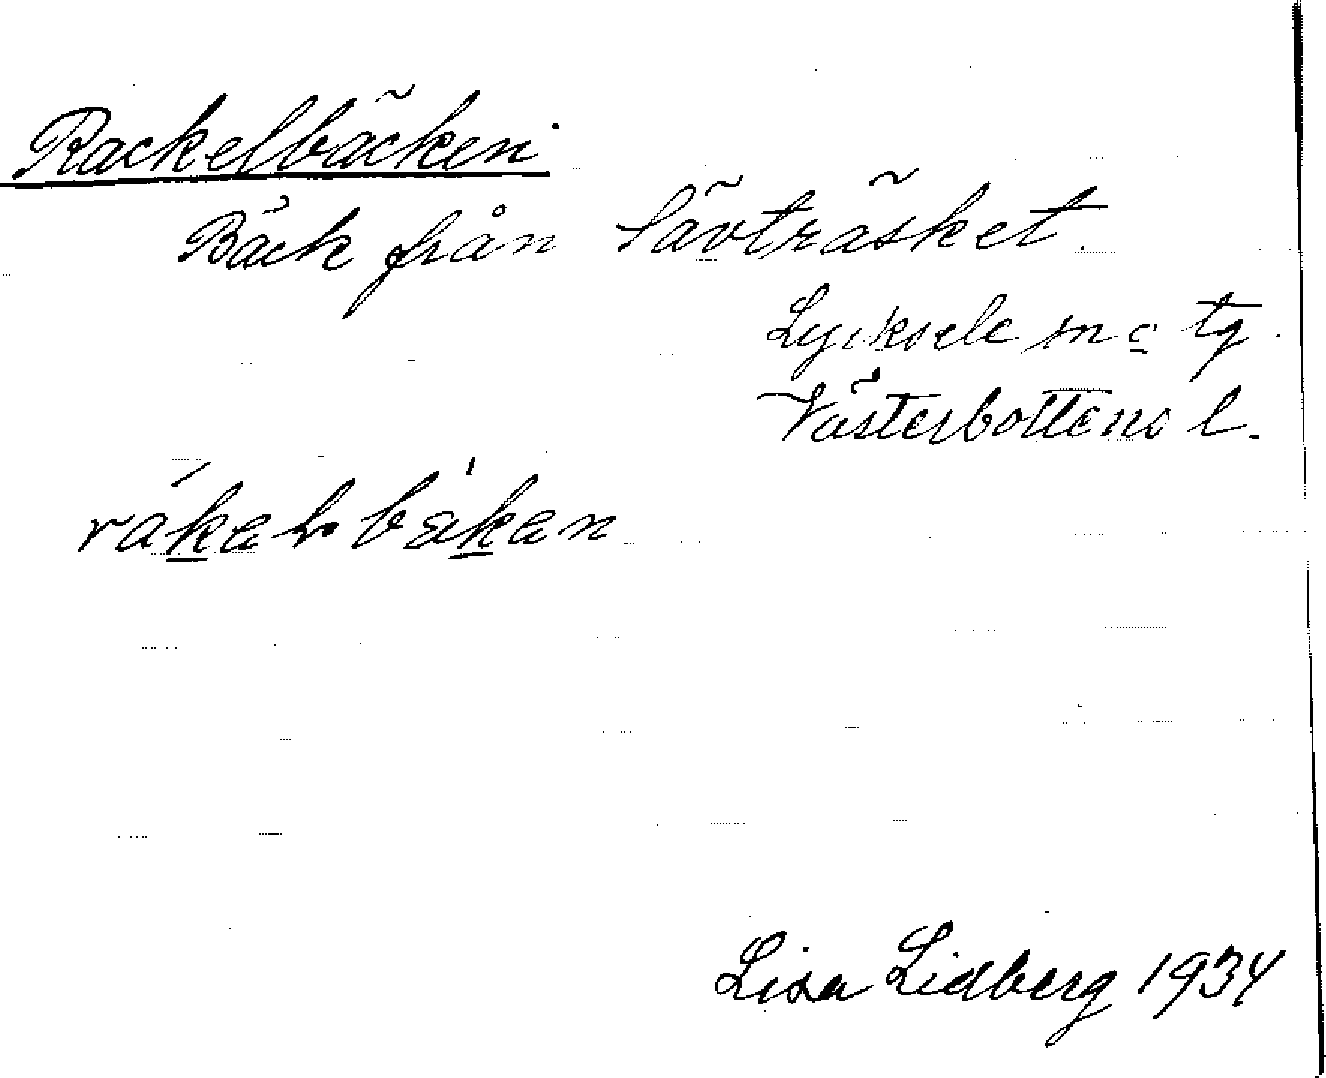 Rackelbäcken
Bäck från Sävträsket.
Lycksele sn o tg.
Västerbottens l.
Lisa Lidberg 1934